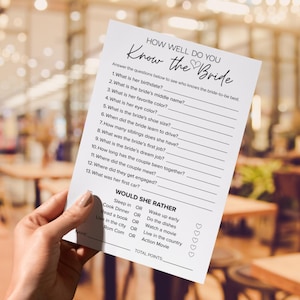 HOW WELL DO YOU
Know the Bride
Answer the questions below to see who knows the bride to be best.
1. What is her birthdate?
2. What is the bride's middle name?
3. What is her favorite color?
4. What is her eye color?
5. What is the bride's shoe size?
6. When did the bride learn to drive?
7. How many siblings does she have?
8. What was the bride's first job?
9. What is the bride's dream job?
10. How long has the couple been together?
11. Where did the couple meet?
12. Where did they get engaged?
13. What was her first car?
WOULD SHE RATHER
Sleep in OR Wake up early
Cook Dinner OR Do the dishes
Read a book OR Watch a movie
Live in the city OR Live in the country
Rom Com OR Action Movie
TOTAL POINTS